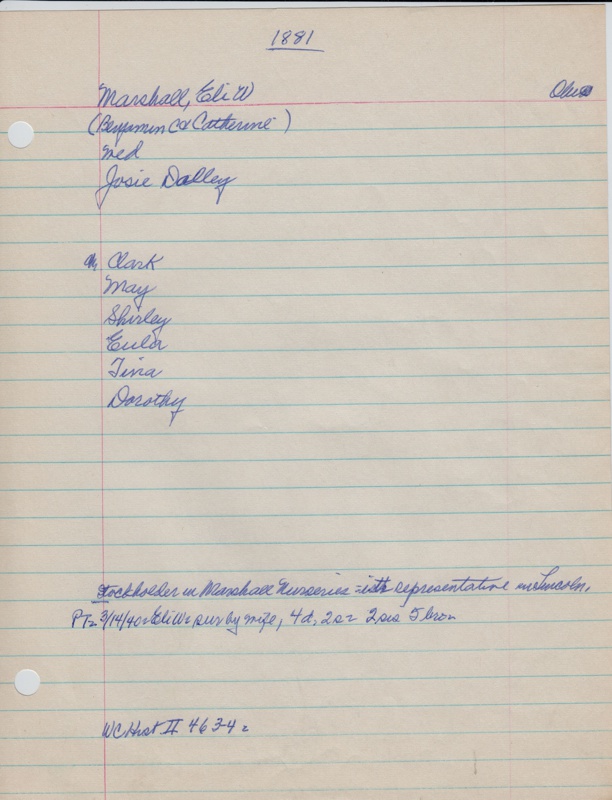 1881
Marshall, Eli W Ohio
(Benjamin C & Catherine)
Med
Josie Dalley
Ch, Clark
May
Shirley
Eula
Tina
Dorothy
Stockholder in Marshall Nurseries = its representative in Lincoln.
PT= 3/14/40= Eli W= sur by wife, 4 d, 2 s= 2 sis 5 bro=
WC Hist II 463-4=